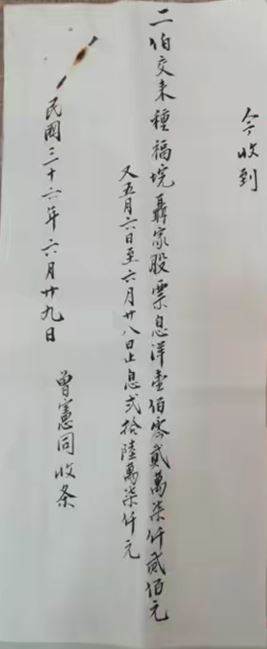 今收到
二伯交来種福垸聶家股票息洋壹佰零貳萬柒仟貳佰元
又五月六日至六月廿八日止息弍拾陸萬柒仟元
民國三十六年六月廿九日
曾憲同收条